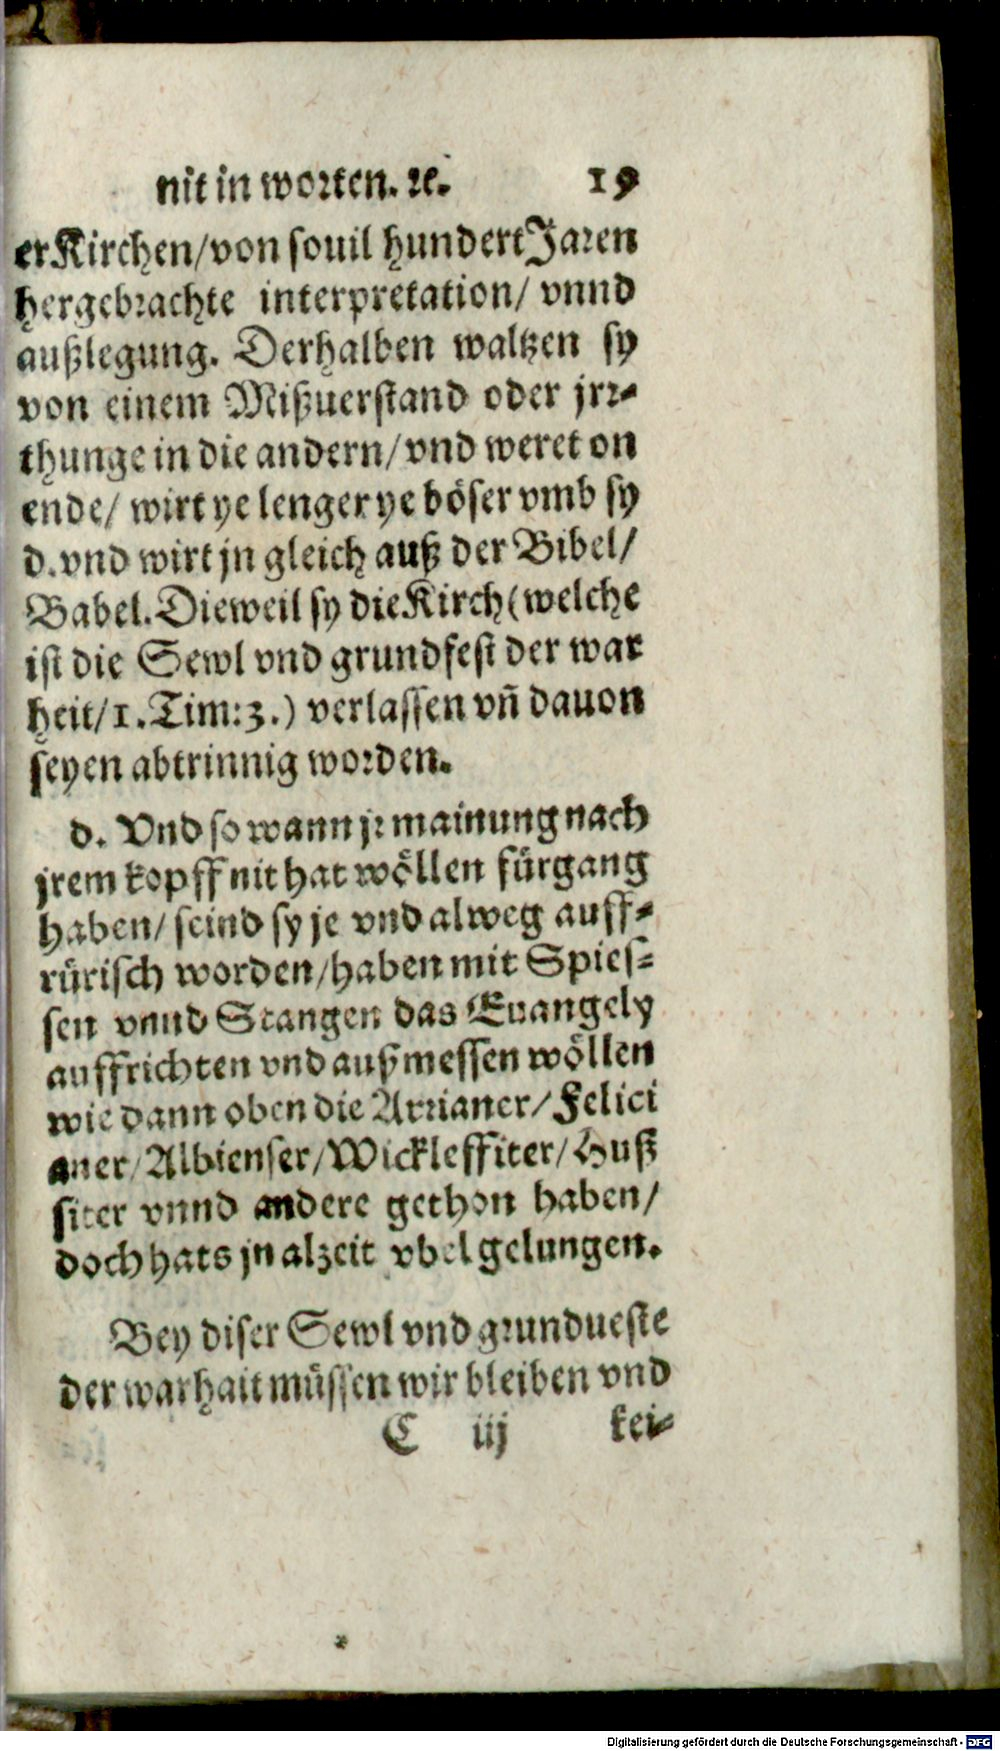 nit in worten. ꝛc. 19
er Kirchen/ von souil hundert Jaren
hergebrachte interpretation/ vnnd
außlegung. Derhalben waltzen sy
von einem Mißuerstand oder jrr-
thunge in die andern/ vnd weret on
ende/ wirt ye lenger ye böser vmb sy
d. vnd wirt jn gleich auß der Bibel/
Babel. Dieweil sy die Kirch (welche
ist die Sewl vnd grundfest der war
heit/ 1. Tim: 3.) verlassen vñ dauon
seyen abtrinnig worden.
d. Vnd so wann jr mainung nach
jrem kopff nit hat wöllen fürgang
haben/ seind sy je vnd alweg auff-
rürisch worden/ haben mit Spies-
sen vnnd Stangen das Euangely
auffrichten vnd außmessen wöllen
wie dann oben die Arrianer/ Felici
aner/ Albienser/ Wickleffiter/ Huß
siter vnnd andere gethon haben/
doch hats jn alzeit vbel gelungen.
Bey diser Sewl vnd grundueste
der warhait müssen wir bleiben vnd
C iij kei-
Digitalisierung gefördert durch die Deutsche Forschungsgemeinschaft - DFG